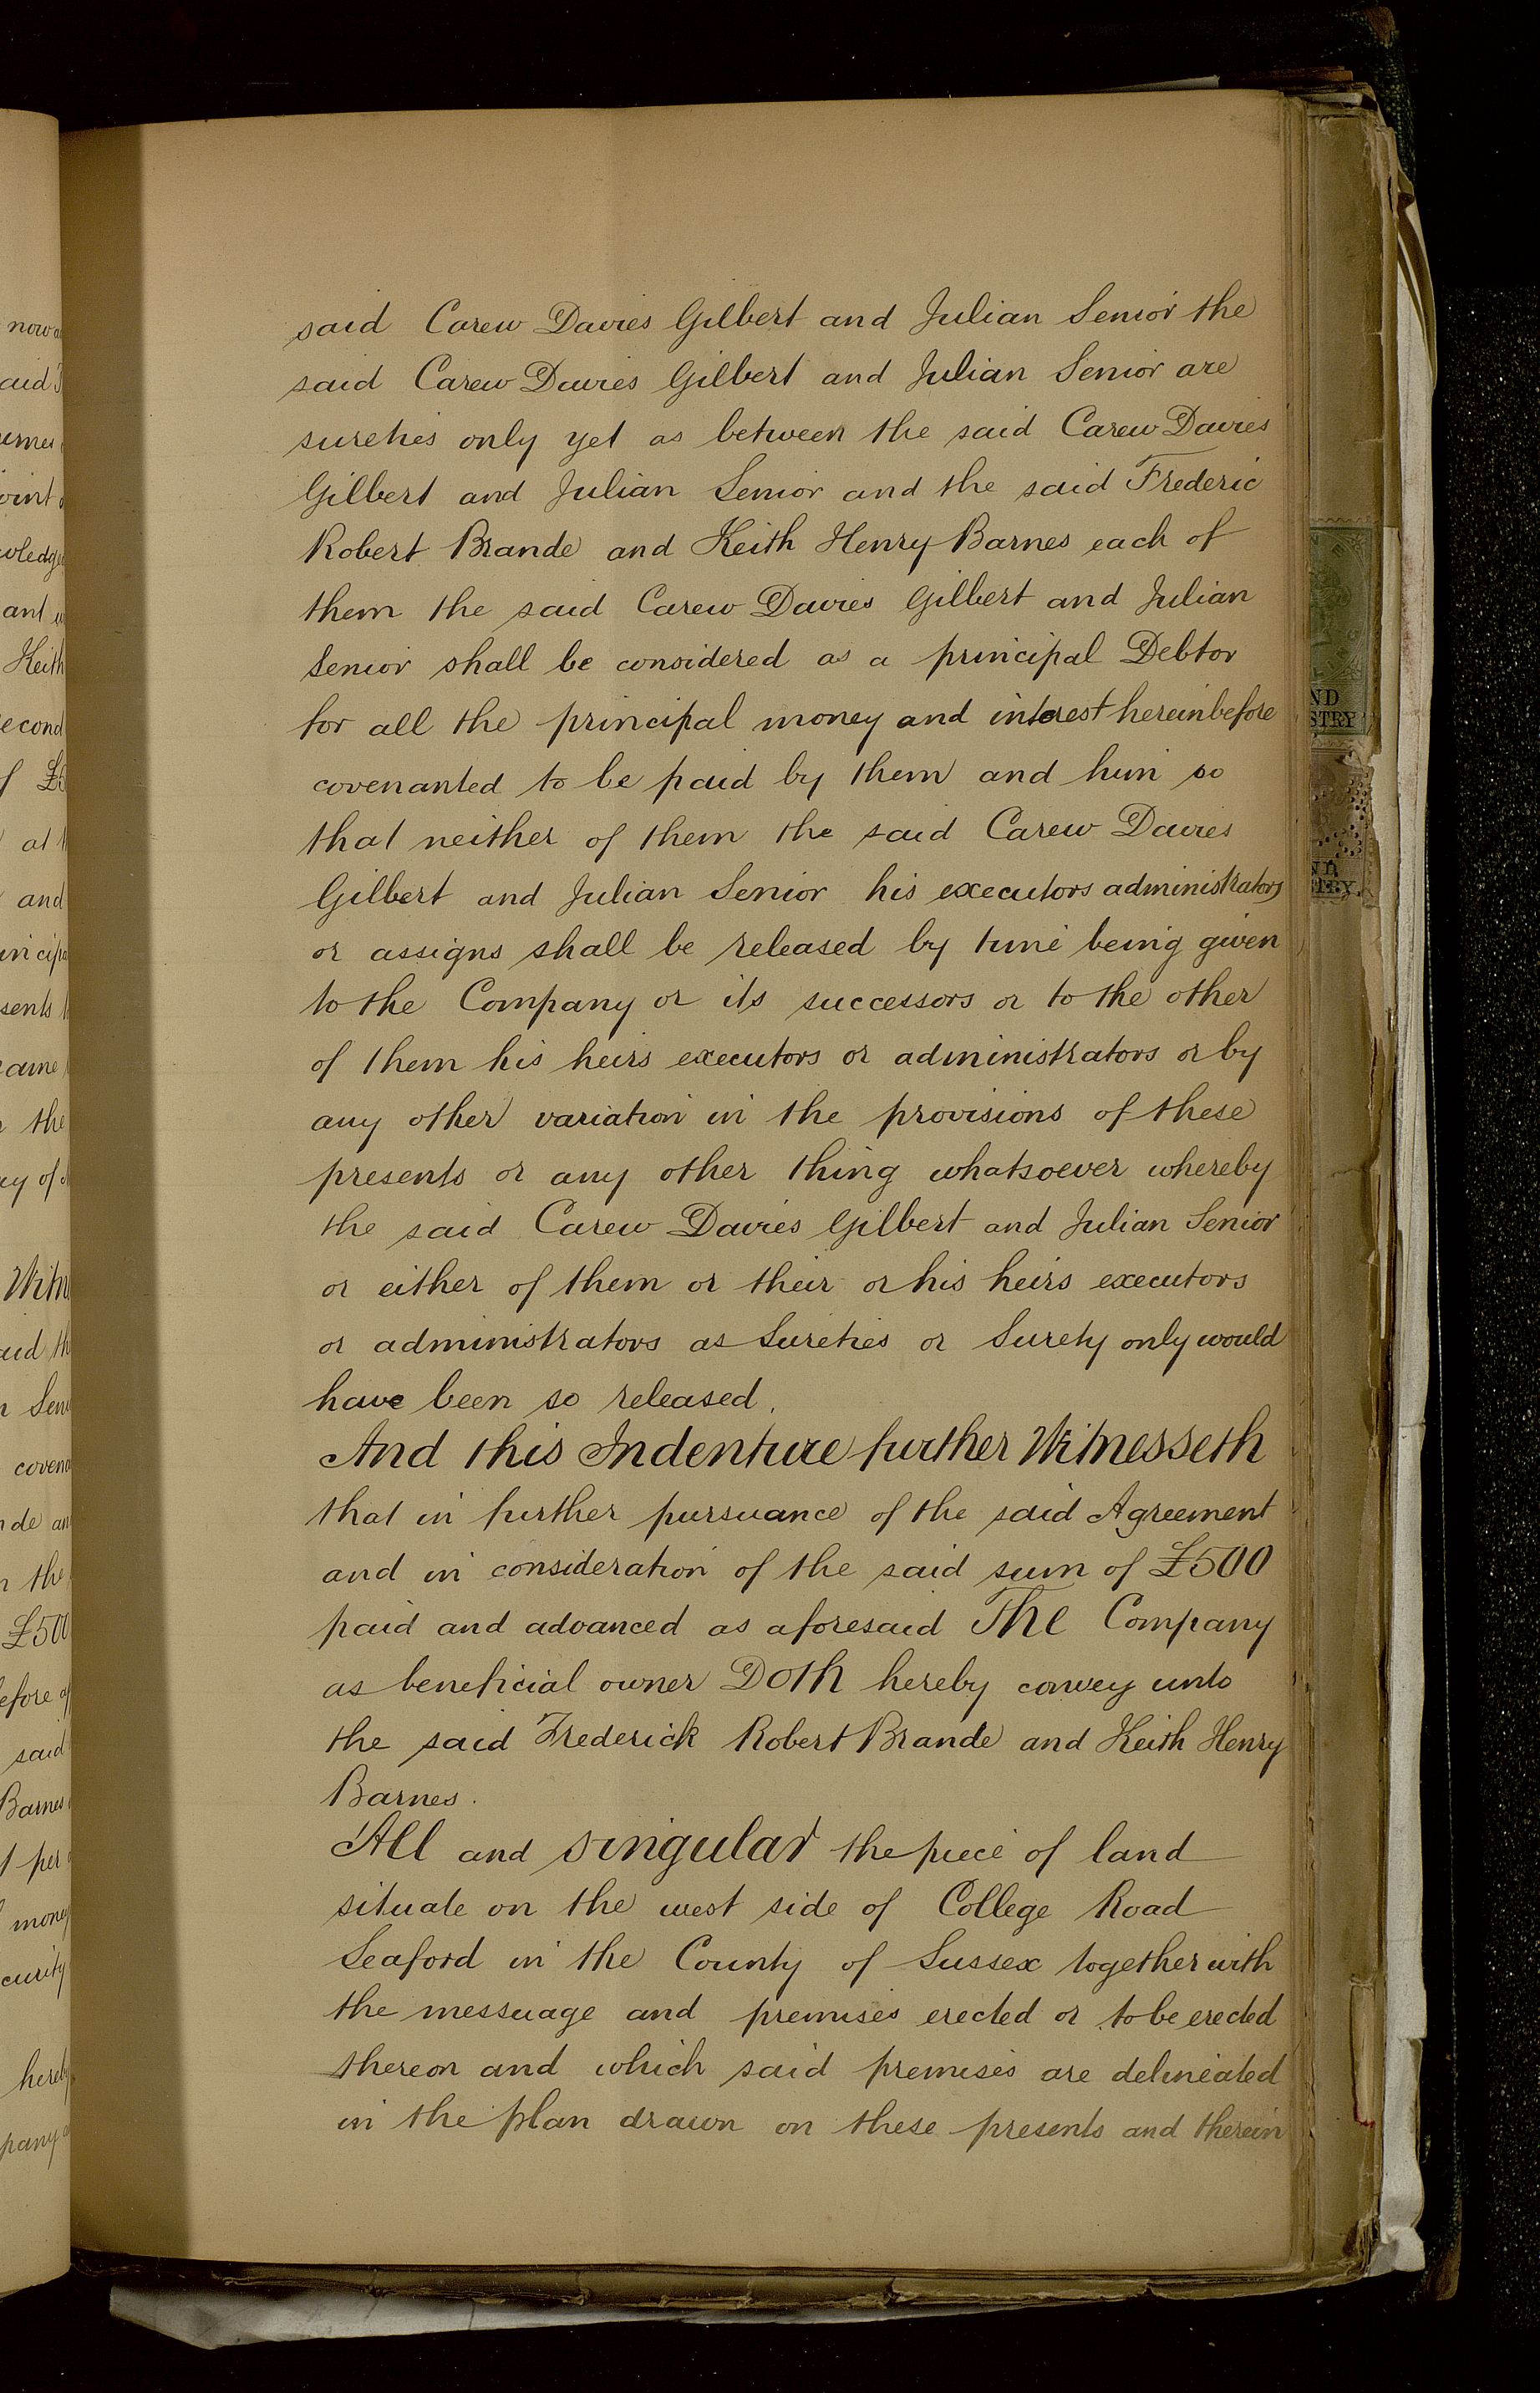 said Carew Davies Gilbert and Julian Senior the
said Carew Davies Gilbert and Julian Senior are
sureties only yet as between the said Carew Davies
Gilbert and Julian Senior and the said Frederic
Robert Brande and Keith Henry Barnes each of
them the said Carew Davies Gilbert and Julian
Senior shall be considered as a principal Debtor
for all the principal money and interest hereinbefore
covenanted to be paid by them and him so
that neither of them the said Carew Davies
Gilbert and Julian Senior his executors administrators
or assigns shall be released by time being given
to the Company or its successors or to the other
of them his heirs executors or administrators or by
any other variation in the provisions of these
presents or any other thing whatsoever whereby
the said Carew Davies Gilbert and Julian Senior
or either of them or their or his heirs executors
or administrators as Sureties or Surety only would
have been so released.
And this Indenture further Witnesseth
that in further pursuance of the said Agreement
and in consideration of the said sum of £500
paid and advanced as aforesaid The Company
as beneficial owner Doth hereby convey unto
the said Frederick Robert Brande and Keith Henry
Barnes.
All and singular the piece of land
situate on the west side of College Road
Seaford in the County of Sussex together with
the messuage and premises erected or to be erected
thereon and which said premises are delineated
in the plan drawn on these presents and therein